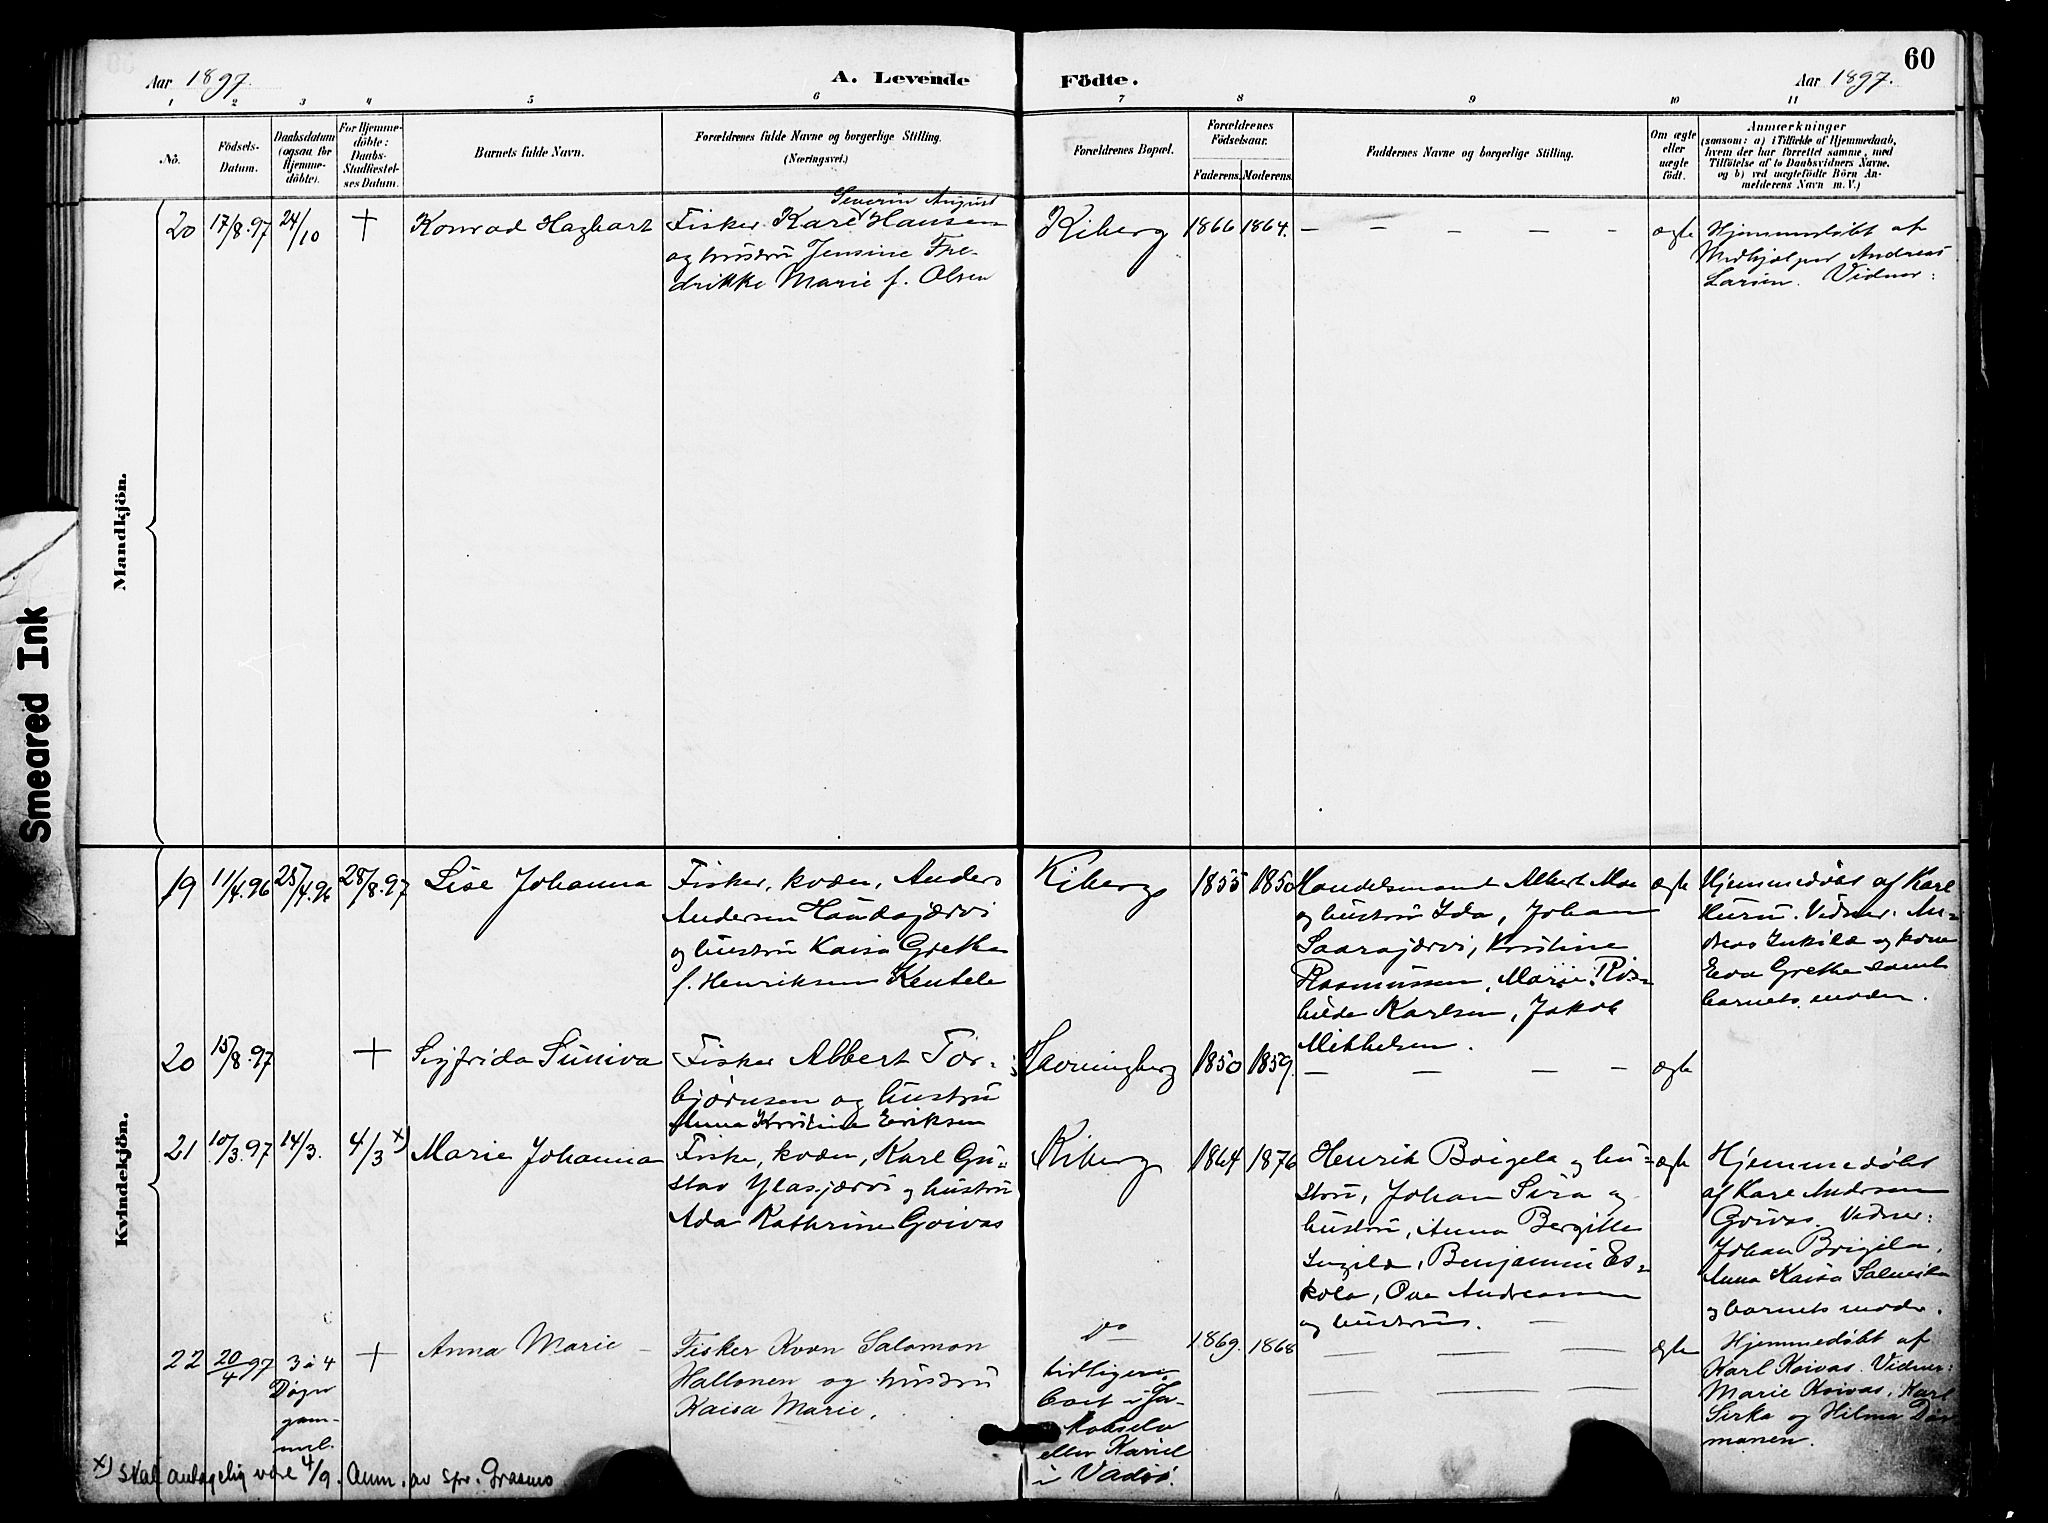 60
Aar 1897.
A. Levende
Födte.
Aar 1897.
1 2 3 4 5 6 7 8 9 10 11
No.
Födsels-
Datum.
Daabsdatum
(ogsaa for
Hjemme-
döbte).
For Hjemme-
döbte:
Daabs-
Stadfæstel-
ses Datum.
Barnets fulde Navn.
Forældrenes fulde Navne og borgerlige Stilling.
(Næringsvei.)
Forældrenes Bopæl.
Forældrenes
Födselsaar.
Faderens.
Moderens.
Faddernes Navne og borgerlige Stilling.
Om ægte
eller
uægte
födt.
Anmærkninger
(saasom: a) i Tilfælde af Hjemmedaab,
hvem der har forrettet samme, med
Tilföielse af to Daabsvidners Navne,
og b) ved uægtefödte Börn An-
melderens Navn m. V.)
Mandkjön.
20
17/8.97
24/10
+
Konrad Hagbart
Severin August
Fisker Karl Hansen
og hustru Jensine Fre-
drikke Marie f. Olsen
Kiberg
1866
1864.
— — — — —
ægte
Hjemmedöbt af
Medhjælper Andreas
Larsen. Vidner:
Smeared Ink
Kvindekjön.
19
11/4.96
25/4.96
28/8.97
Lise Johanna
Fisker, kvæn, Anders
Andersen Haudajærvi
og hustru Kaisa Grethe
f. Henriksen Kentele
Kiberg
1855
1850
Handelsmand Albert Moe
og hustru Ida, Johan
Saarajærvi, Kristine
Rasmussen, Marie
Karlsen, Jakob
Mikkelsen.
ægte
Hjemmedöbt af Karl
Huru. Vidner: An-
dreas Inkilæ og kone
Eva Grethe samt
barnets moder.
20
15/8.97
+
Sigfrida Suniva
Fisker Albert Tor-
bjørnsen og hustru
Anna Kristine Eriksen
Havningberg
1850
1859.
— — — —
ægte
21
10/3.97
14/3.
4/3 x)
Marie Johanna
Fisker, kvæn, Karl Gu-
stav Ylasjærvi og hustru
Ada Kathrine Goivas
Kiberg
1864
1876
Henrik Brigela og hu-
stru, Johan Sira og
hustru, Anna Bergitte
Ingilæ, Benjamin Es-
kola, Ove Andreasen
og hustrus.
ægte
Hjemmedöbt
af Karl Andersen
Goivas. Vidner:
Johan Brigila,
Anna Kaisa
og barnets moder.
22
20/4 97
3 à 4
Døgn
gam-
mel.
+
Anna Marie —
Fisker Kvæn Salomon
Hallonen og hustru
Kaisa Marie.
Do
tidligere
boet i Ja-
kobselv
eller Kariel
i Vadsø.
1869.
1868
— — — —
— — — —
ægte
Hjemmedöbt af
Karl Koivas. Vidner:
Marie Koivas, Karl
Sirka og Hilma
manen.
x) Skal antagelig være 4/9. Anm. av spr. Grasmo